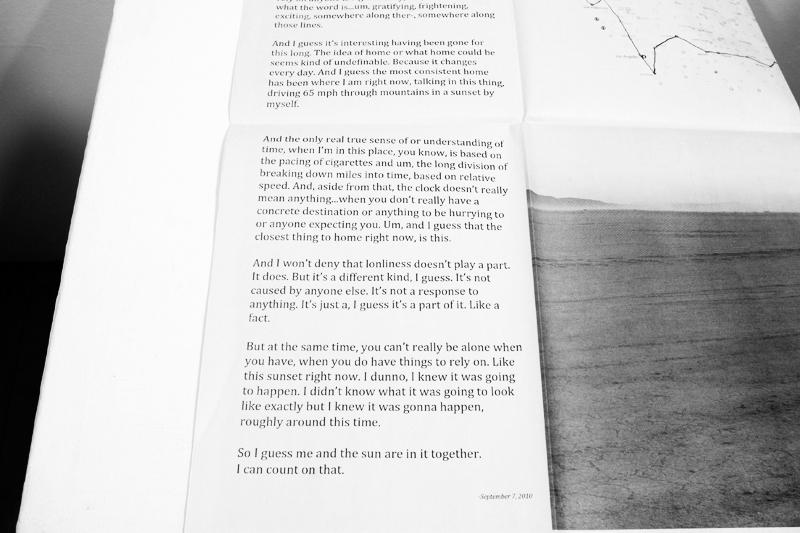 what the word is...um, gratifying, frightening,
exciting, somewhere along ther-, somewhere along
those lines.
And I guess it's interesting having been gone for
this long. The idea of home or what home could be
seems kind of undefinable. Because it changes
every day. And I guess the most consistent home
has been where I am right now, talking in this thing,
driving 65 mph through mountains in a sunset by
myself.
And the only real true sense of or understanding of
time, when I'm in this place, you know, is based on
the pacing of cigarettes and um, the long division of
breaking down miles into time, based on relative
speed. And, aside from that, the clock doesn't really
mean anything...when you don't really have a
concrete destination or anything to be hurrying to
or anyone expecting you. Um, and I guess that the
closest thing to home right now, is this.
And I won't deny that lonliness doesn't play a part.
It does. But it's a different kind, I guess. It's not
caused by anyone else. It's not a response to
anything. It's just a, I guess it's a part of it. Like a
fact.
But at the same time, you can't really be alone when
you have, when you do have things to rely on. Like
this sunset right now. I dunno, I knew it was going
to happen. I didn't know what it was going to look
like exactly but I knew it was gonna happen,
roughly around this time.
So I guess me and the sun are in it together.
I can count on that.
-September 7, 2010